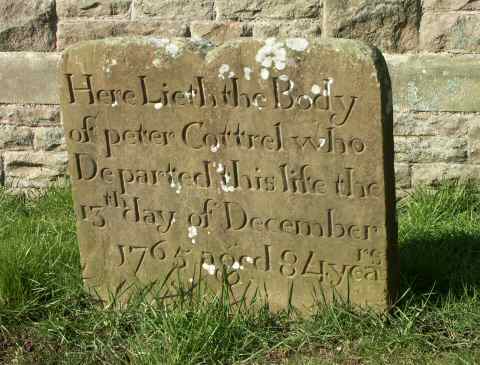 Here Lieth the Body
of peter Cottrel who
Departed this life the
13th day of December
1765 aged 84 years